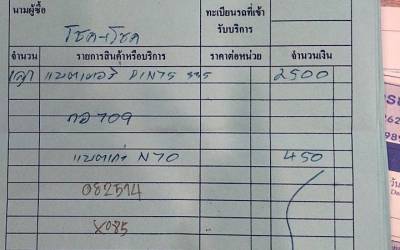 นามผู้ซื้อ
ทะเบียนรถที่เข้ารับบริการ
โชค-โชค
จำนวน รายการสินค้าหรือบริการ ราคาต่อหน่วย จำนวนเงิน
แบตเตอรี่ DIN75 2500
กอ 709
แบตเก่า N70 450
082514
8085